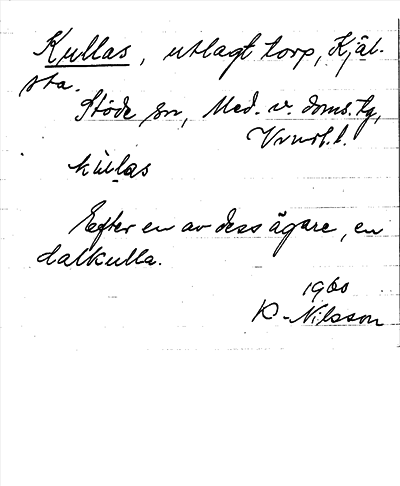 Kullas, utlagt torp, Kjäl-
sta.
Stöde sn, Med. v. doms. tg,
Vrnrl. l.
kullas
Efter en av dess ägare, en
dalkulla.
1960
K-Nilsson